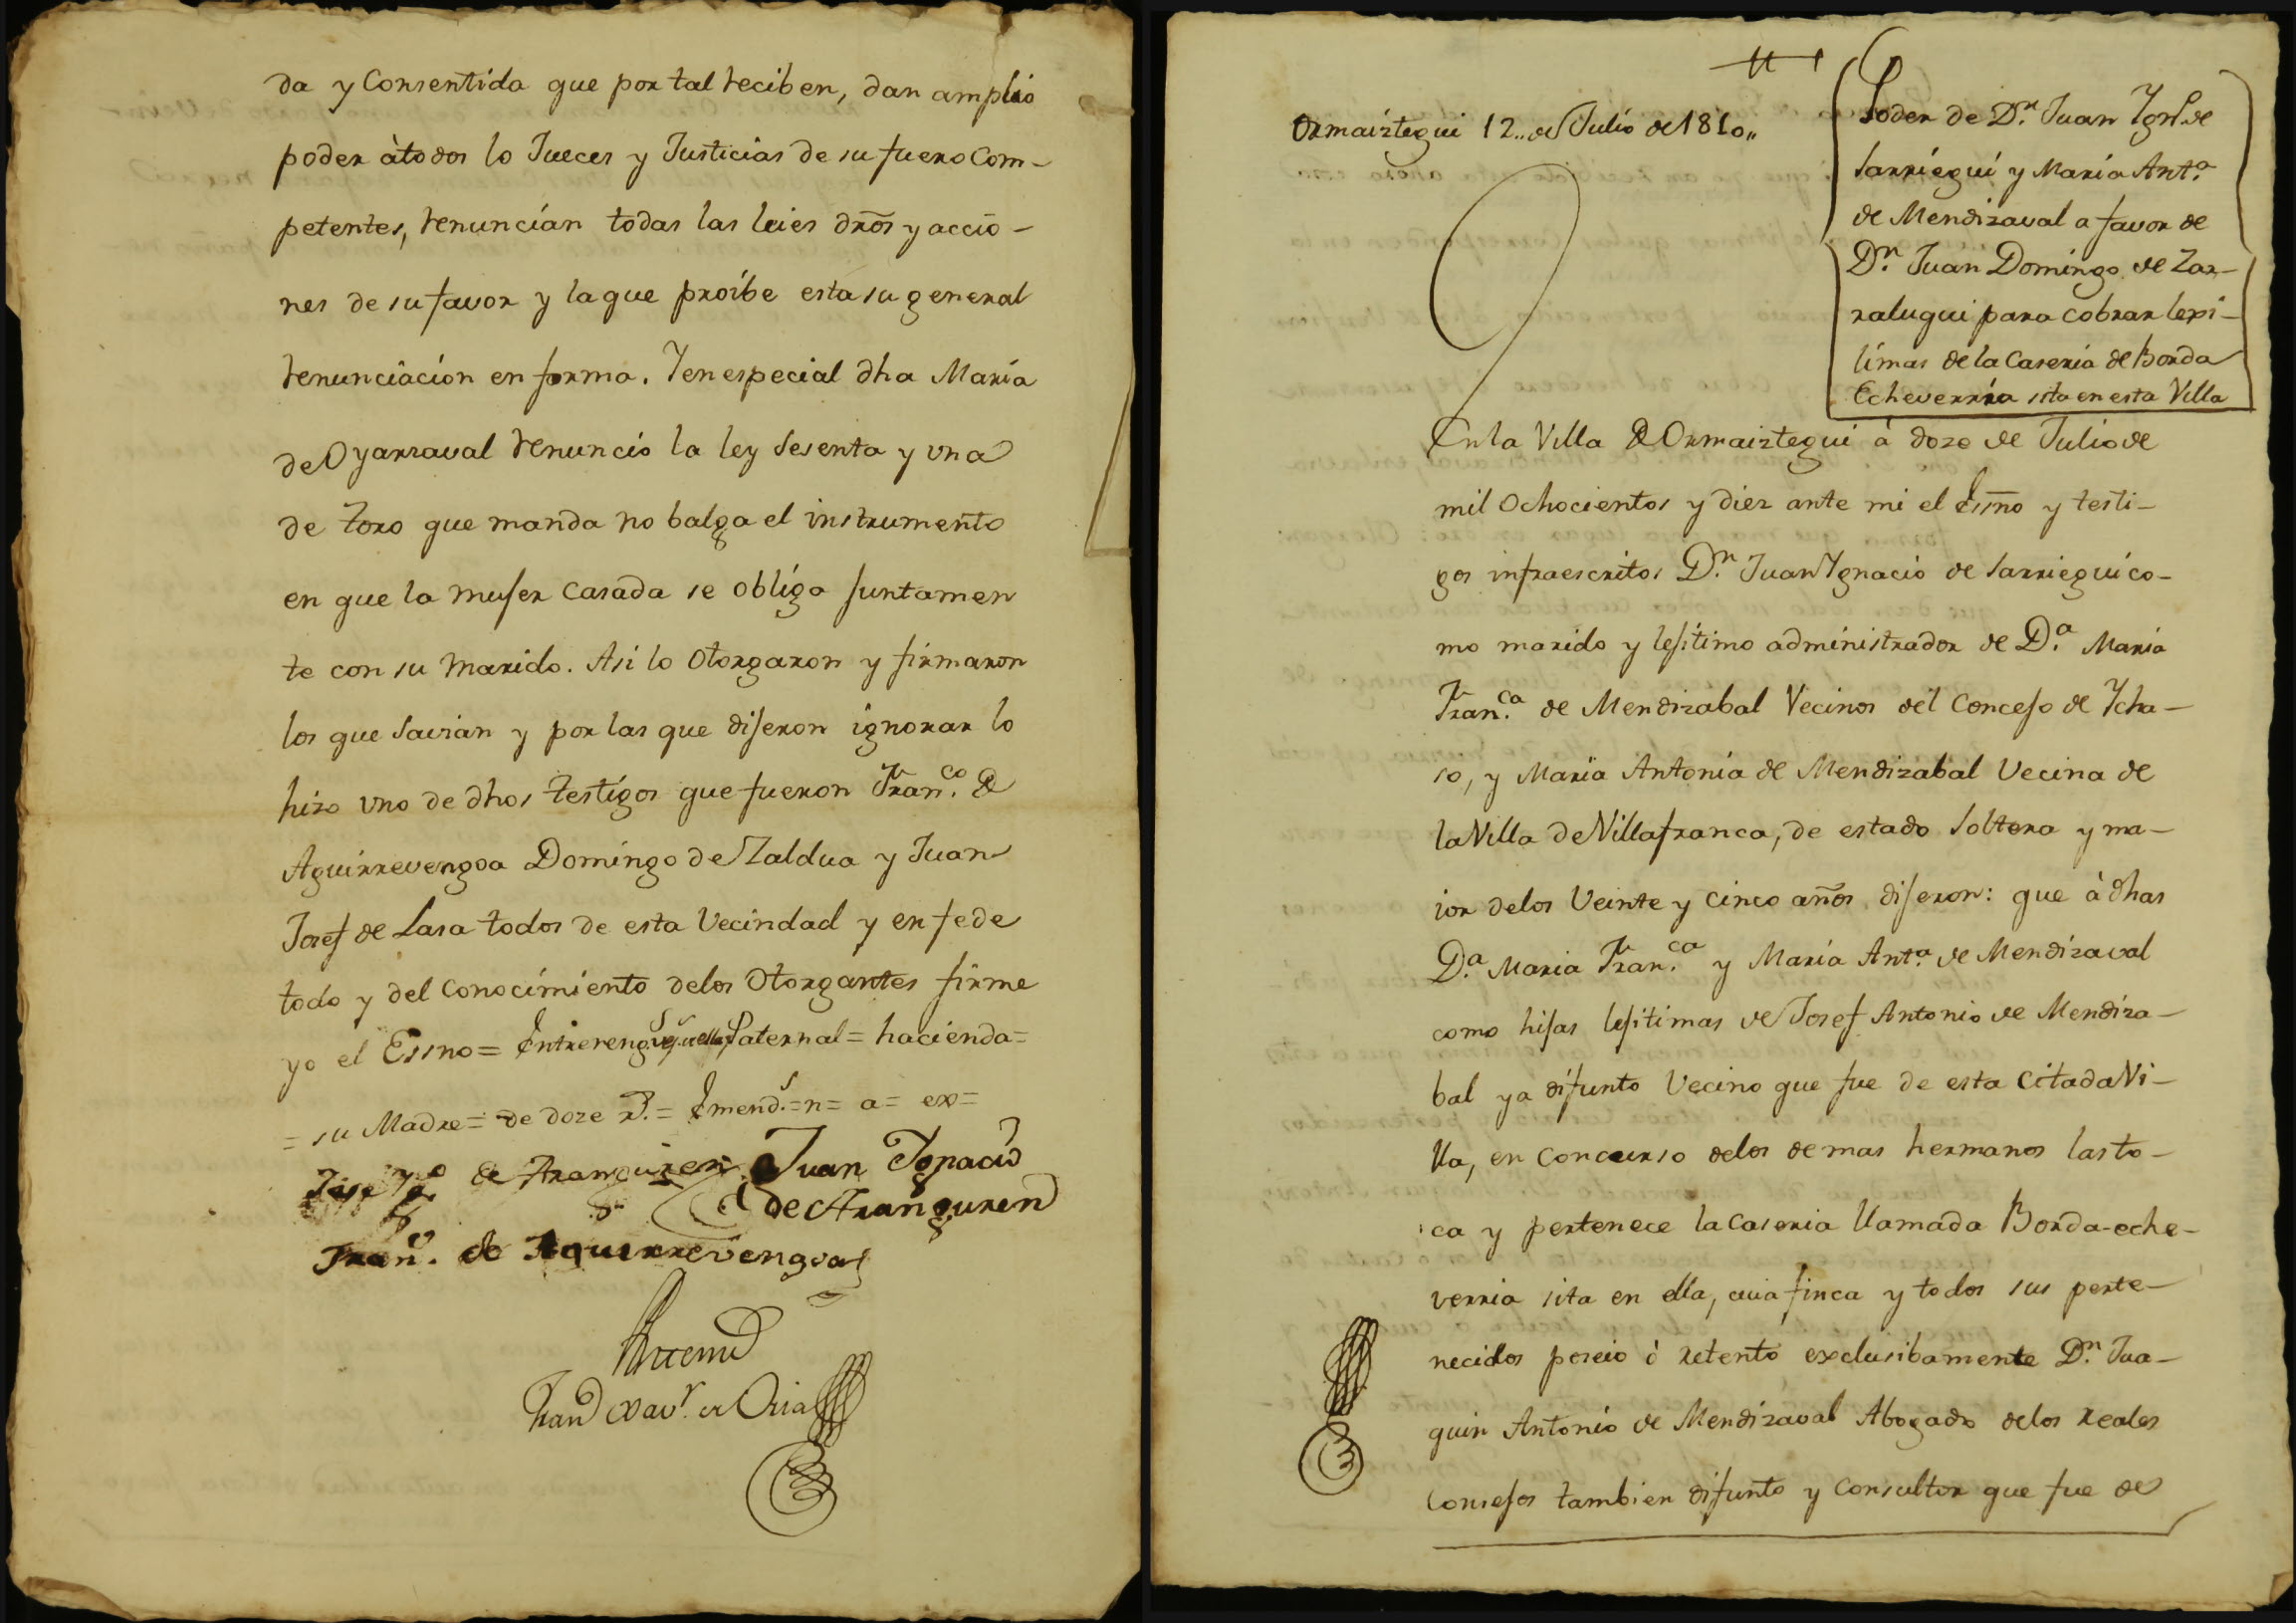 da y Consentida que por tal reciben, dan amplio
poder à todos lo Jueces y Justicias de su fuero Com-
petentes, renuncían todas las leies dr̃os y accio-
nes de su favor y la que proíbe esta su general
renunciacion en forma. Y en especial dha María
de Oyarzaval renunció la ley sesenta y una
de Toro que manda no balga el instrumento
en que la muger casada se obliga juntamen
te con su marido. Asi lo otorgaron y firmaron
los que savian y por las que digeron ignorar lo
hizo uno de dhos testígos que fueron Fran.co de
Aguirrevengoa Domingo de Zaldua y Juan
Josef de Lasa todos de esta Vecindad y en fe de
todo y del conocimiento de los Otorgantes firme
yo el Essno = Entrereng.s Paternal = hacienda =
= su Madre = de doze = Emend.s = n = a = ex =
de Aranguren Juan Ygnacio
de Aranguren
Fran.co de Aguirrevengoa
Antemi
Fran.co Xav.r de Oria
Ormaiztegui 12.. de Julio de 1810..
Poder de D.n Juan Ygn.o de
Sarriegui y María Ant.a
de Mendizaval a favor de
D.n Juan Domingo de Zar-
ralugui para cobrar lexi-
timas de la Caseria de Borda
Echeverria sita en esta Villa
En la Villa de Ormaiztegui à doze de Julio de
mil ochocientos y diez ante mi el Essno y testi-
gos infraescritos D.n Juan Ygnacio de Sarriegui co-
mo marido y legítimo administrador de D.a María
Fran.ca de Mendizabal Vecinos del Concejo de Ycha-
so, y María Antonia de Mendizabal Vecina de
la Villa de Villafranca, de estado soltera y ma-
ior de los Veinte y cinco años digeron: que à dhas
D.a Maria Fran.ca y María Ant.a de Mendizaval
como hijas legitimas de Josef Antonio de Mendiza-
bal ya difunto Vecino que fue de esta Citada Vi-
lla, en concurso de los demas hermanos las to-
ca y pertenece la Caseria llamada Borda-eche-
verria sita en ella, cuia finca y todos sus perte-
necidos poseio ò retento exclusibamente D.n Joa-
quin Antonio de Mendizaval Abogado de los Reales
Consejos tambien difunto y Consultor que fue de